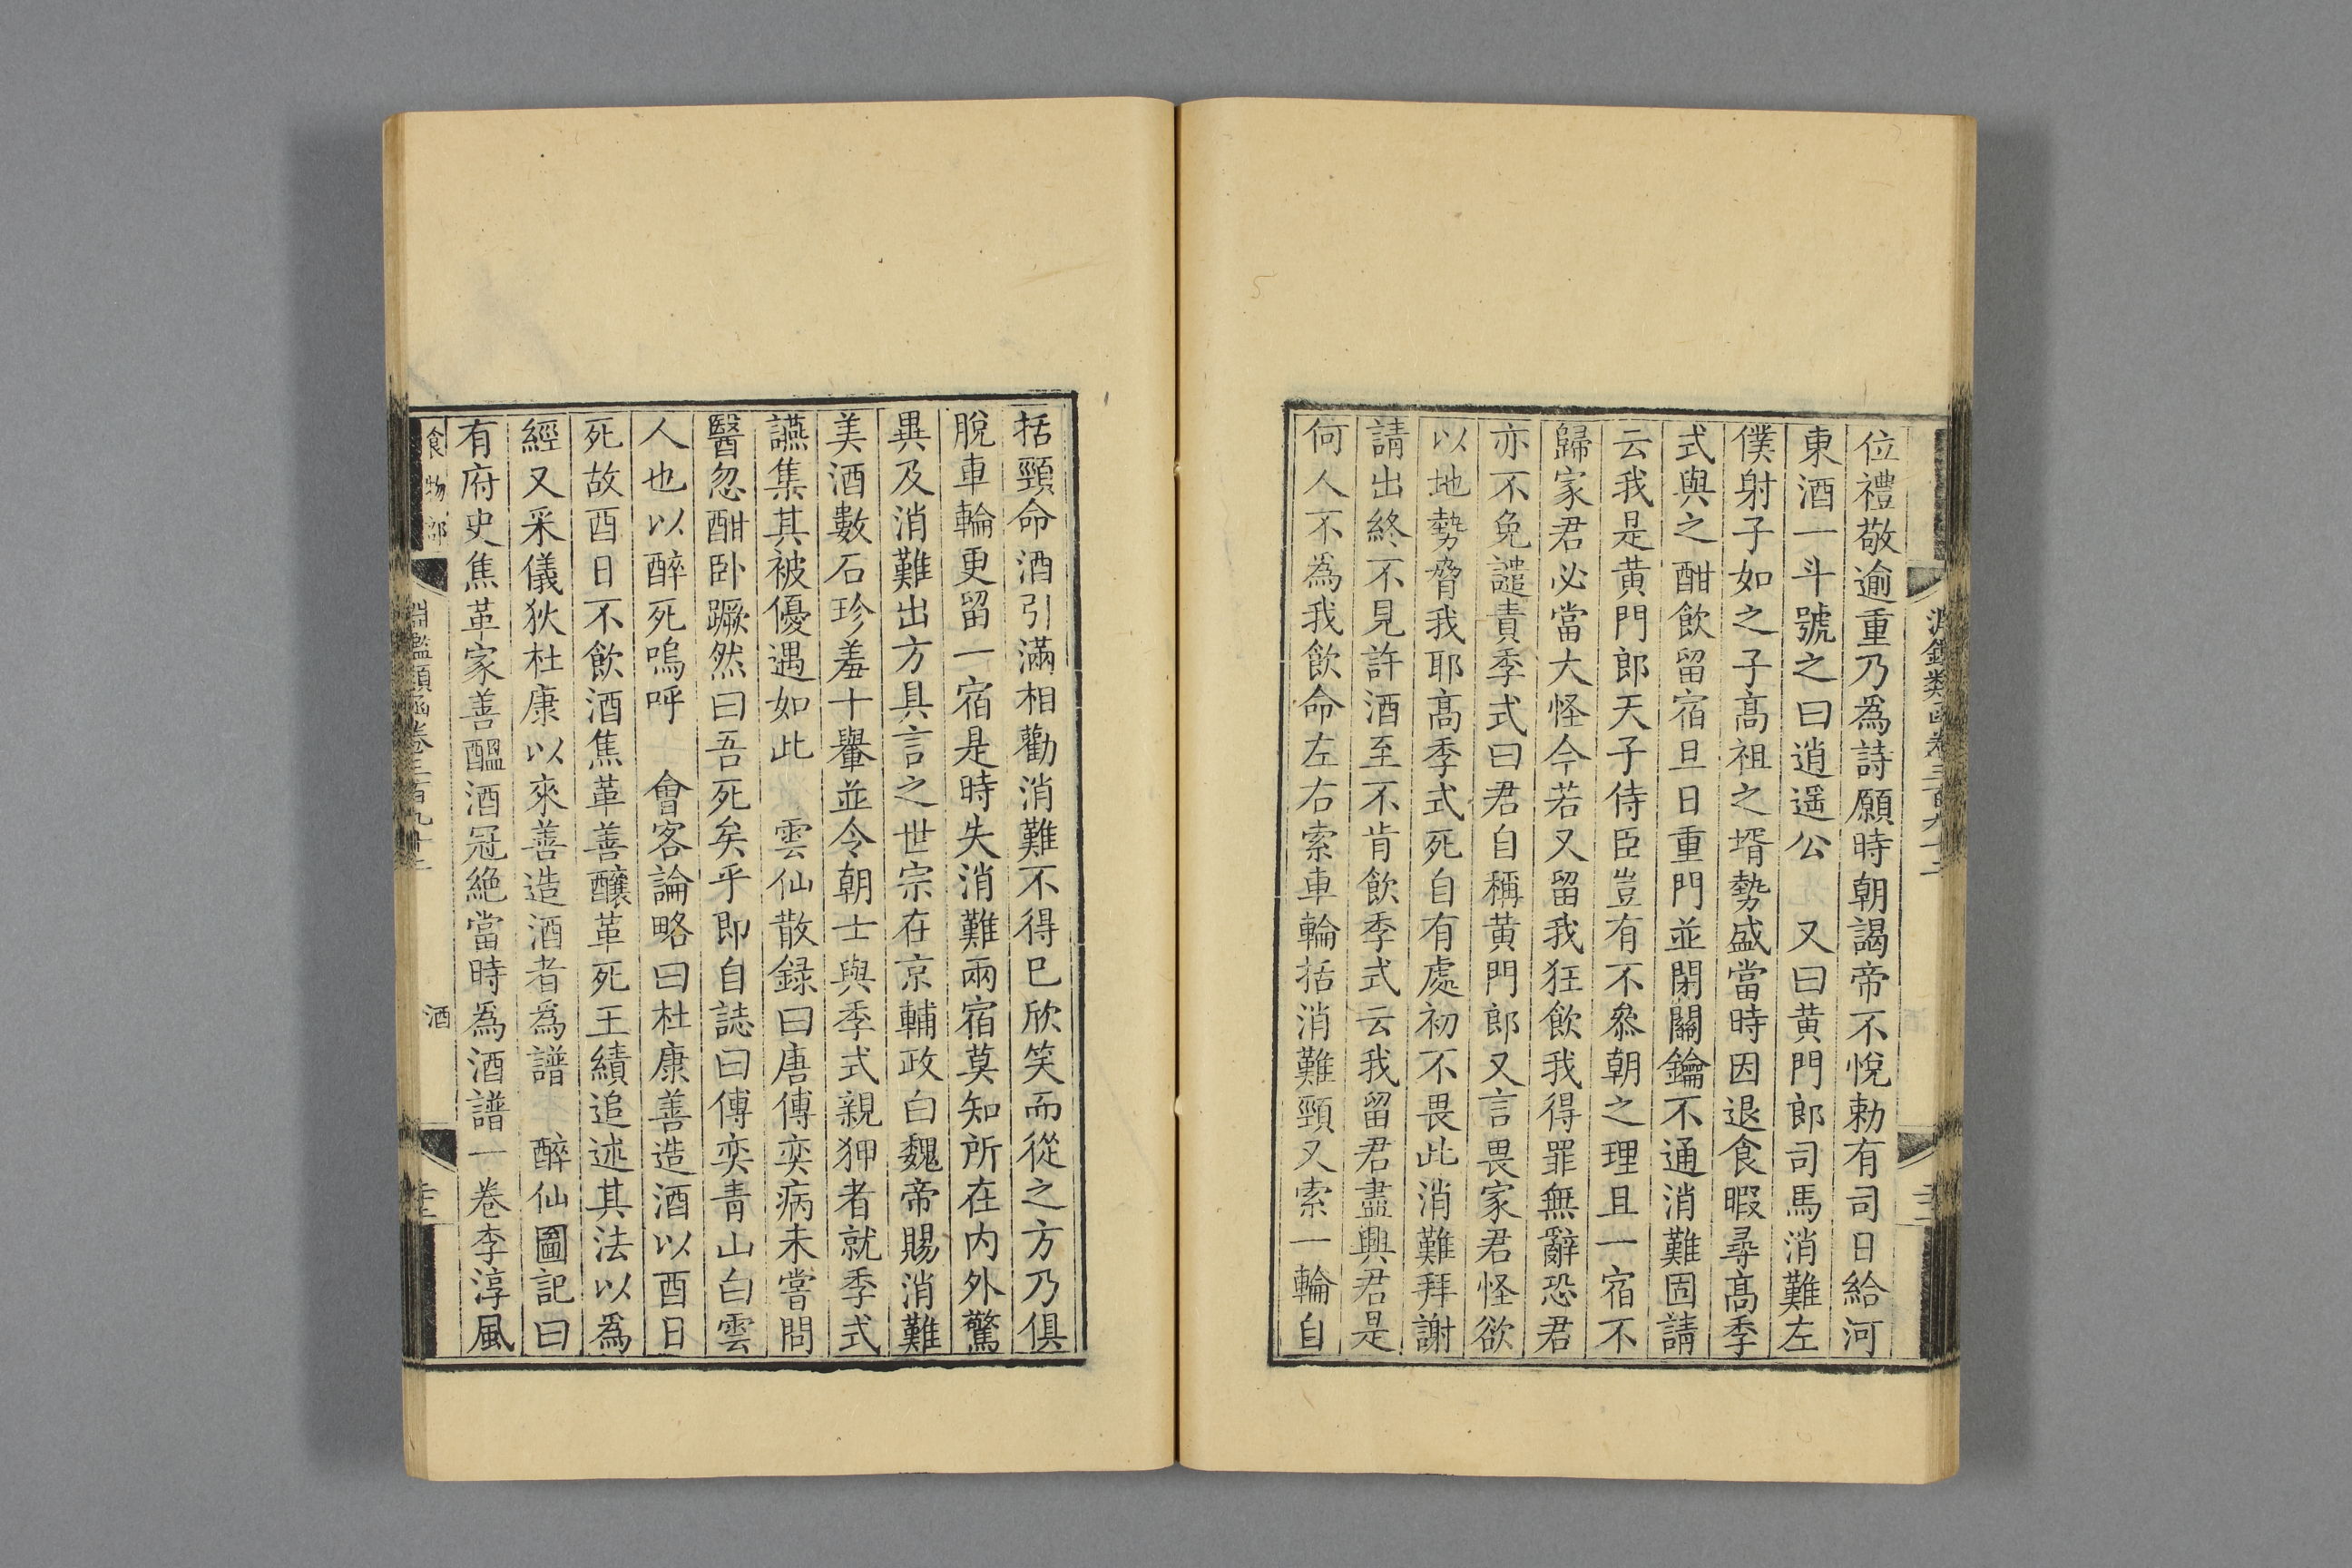 淵鑑類函卷三百九十二
位禮敬逾重乃爲詩願時朝謁帝不悅勅有司日給河
東酒一斗號之曰逍遥公　又曰黄門郎司馬消難左
僕射子如之子髙祖之壻勢盛當時因退食暇尋髙季
式與之酣飲留宿旦日重門並閉關鑰不通消難固請
云我是黄門郎天子侍臣豈有不叅朝之理且一宿不
歸家君必當大怪今若又留我狂飲我得罪無辭恐君
亦不免譴責季式曰君自稱黄門郎又言畏家君怪欲
以地勢脅我耶髙季式死自有處初不畏此消難拜謝
請出終不見許酒至不肯飲季式云我留君盡興君是
何人不為我飲命左右索車輪括消難頸又索一輪自
括頸命酒引滿相勸消難不得已欣笑而從之方乃俱
脫車輪更留一宿是時失消難兩宿莫知所在内外驚
異及消難出方具言之世宗在京輔政白魏帝賜消難
美酒數石珍羞十轝並令朝士與季式親狎者就季式
讌集其被優遇如此　雲仙散録曰唐傅奕病未嘗問
醫忽酣卧蹶然曰吾死矣乎即自誌曰傅奕青山白雲
人也以醉死嗚呼　會客論略曰杜康善造酒以酉日
死故酉日不飲酒焦革善釀革死王績追述其法以爲
經又采儀狄杜康以來善造酒者爲譜　醉仙圖記曰
有府史焦革家善醖酒冠絶當時爲酒譜一卷李淳風
食物部
淵鑑類函卷三百九十二
酒